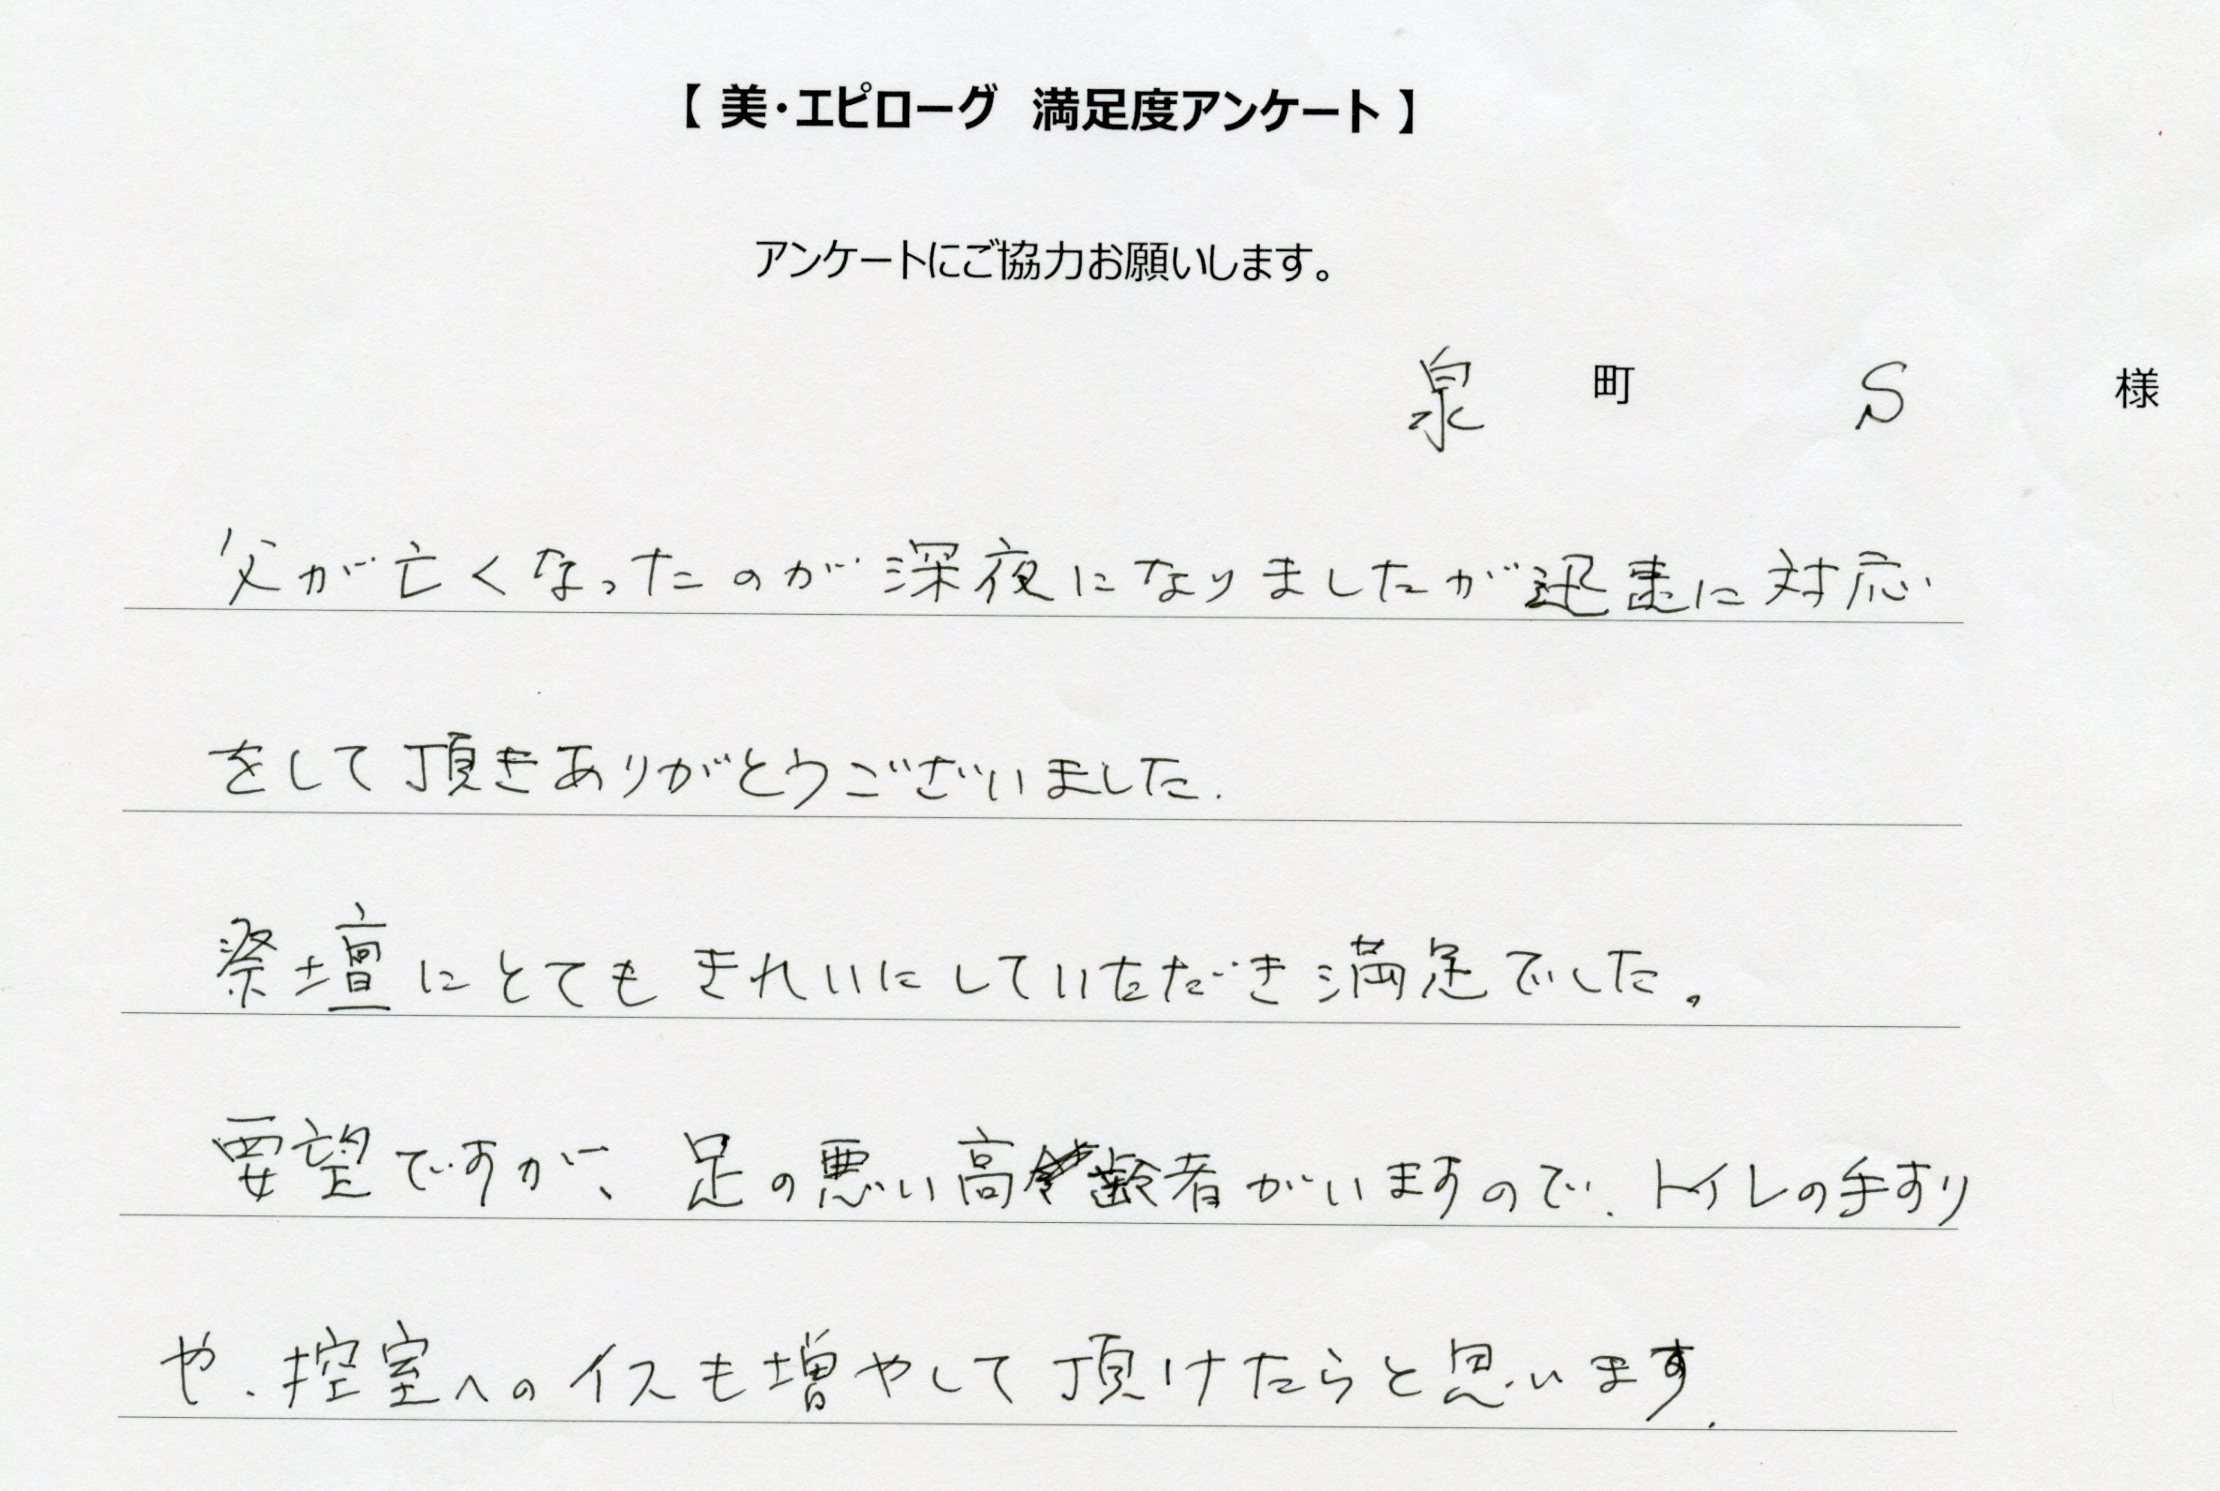 【 美・エピローグ 満足度アンケート 】
アンケートにご協力お願いします。
泉 町 S 様
父が亡くなったのが深夜になりましたが迅速に対応
をして頂きありがとうございました.
祭壇にとてもきれいにしていただき満足でした。
要望ですが、足の悪い高齢者がいますので、トイレの手すり
や、控室へのイスも増やして頂けたらと思います.